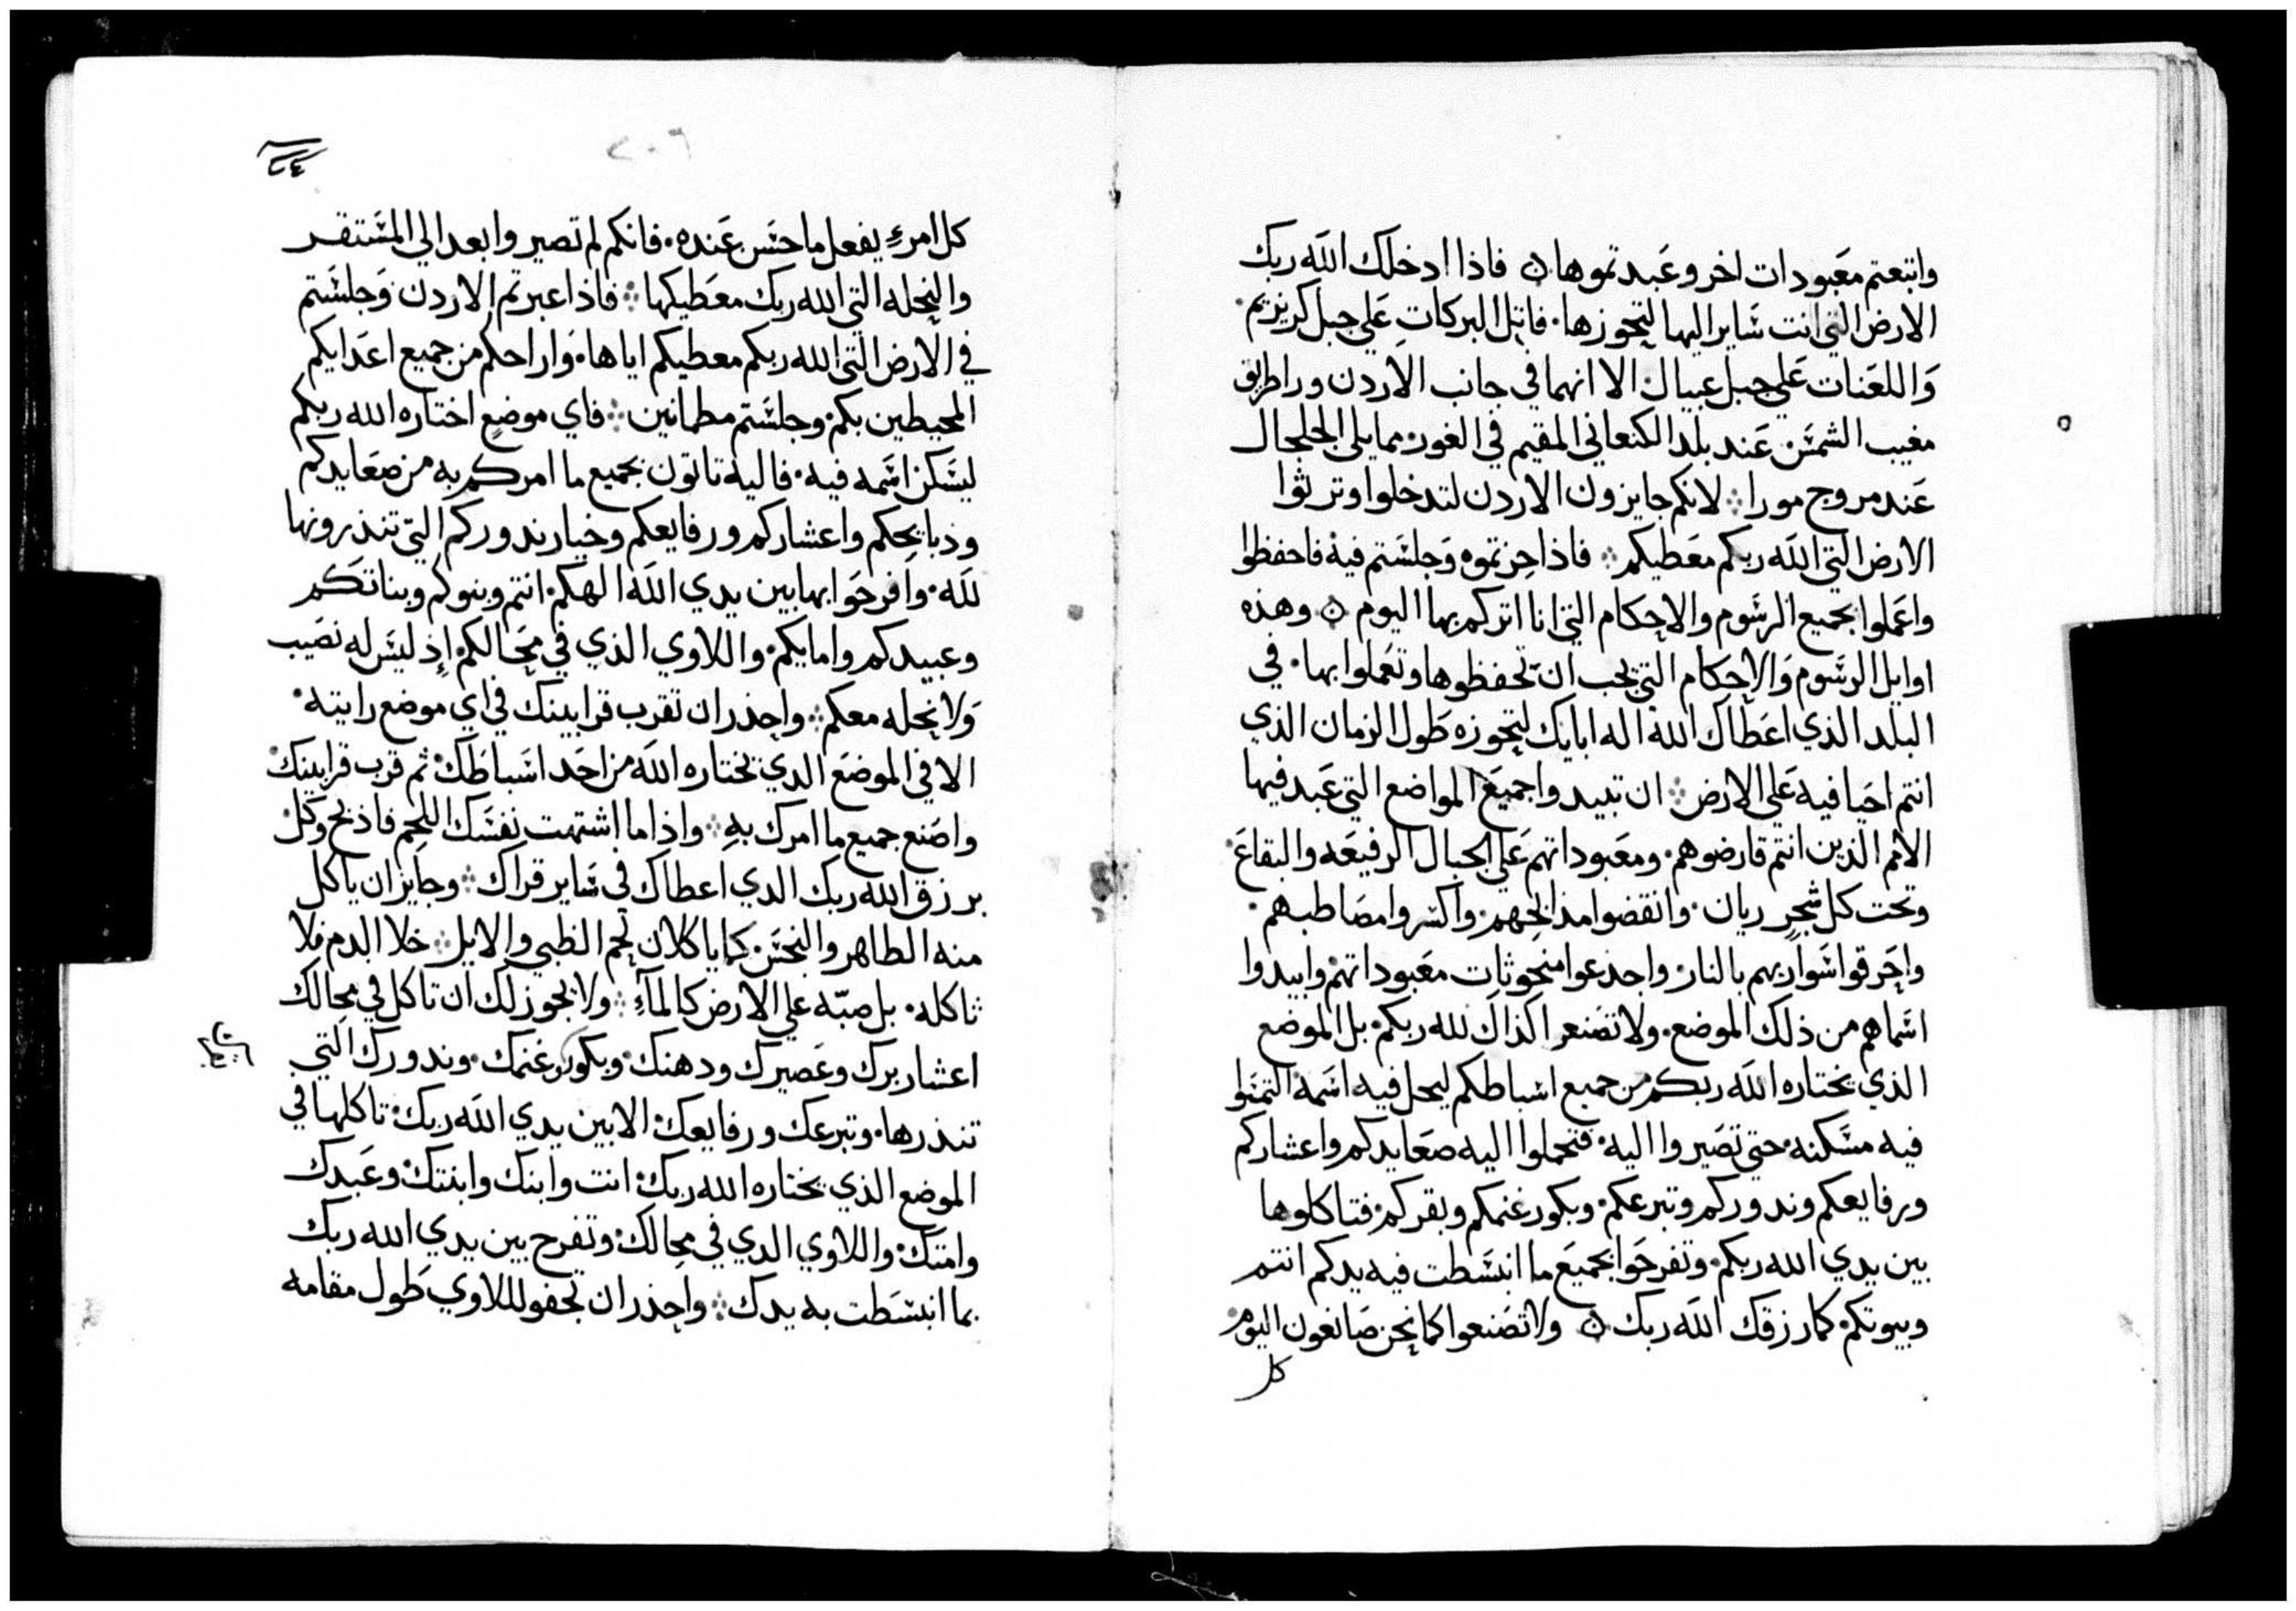 وابتعتم معبودات اخر وعبدتموها ۞ فاذا ادخلك الله ربك
الارض التي انت ساير اليها لتحوزها. فاتل البركات على جبل كريزيم
واللعنات على جبل عيبال الا انهما في جانب الاردن ورا طريق
مغيب الشمس عند بلد الكنعاني المقيم في الغور مما يلي الجلجال
عند مروج مورا ⁘ لانكم جايزون الاردن لتدخلوا وترثوا
الارض التي الله ربكم معطيكم ⁘ فاذا حزتموه وجلستم فيه فاحفظوا
واعملوا بجميع الرسوم والاحكام التي انا اتركم بها اليوم ۞ وهذه
اوايل الرسوم والاحكام التي يجب ان تحفظوها وتعملوا بها. في
البلد الذي اعطاك الله اله ابايك لتحوزه طول الزمان الذي
انتم احيا فيه على الارض ⁘ ان تبيدوا جميع المواضع التي عبد فيها
الامم الذين انتم قارضوهم. ومعبوداتهم على الجبال الرفيعه والبقاع.
وتحت كل شجر ريان. وانقضوا مذابحهم. واكسروا مصاطبهم.
واحرقوا سواريهم بالنار. واجدعوا منحوثات معبوداتهم وابيدوا
اسماهم من ذلك الموضع. ولا تصنعوا كذاك لله ربكم. بل الموضع
الذي يختاره الله ربكم من جميع اسباطكم ليحل فيه اسمه التمسوا
فيه مسكنه. حتى تصيروا اليه. فتحملوا اليه صعايدكم واعشاركم
ورفايعكم وندوركم وتبرعكم. وبكور غنمكم وبقركم. فتاكلوها
بين يدي الله ربكم. وتفرحوا بجميع ما انبسطت فيه يدكم انتم
وبيوتكم. كما رزقك الله ربك ۞ ولا تصنعوا كما نحن صانعون اليوم.
كل
٢٠٦
كل امرء يفعل ما حسن عنده. فانكم لم تصيروا بعد الي المستقر
والنحله التي الله ربك معطيكها ⁘ فاذا عبرتم الاردن وجلستم
في الارض التي الله ربكم معطيكم اياها. واراحكم من جميع اعدايكم
المحيطين بكم. وجلستم مطمانين ⁘ فاي موضع اختاره الله ربكم
ليسكن اسمه فيه. فاليه تاتون بجميع ما امركم به من صعايدكم
وذبايحكم واعشاركم ورفايعكم وخيار ندوركم التي تنذرونها
لله. وافرحوا بها بين يدي الله الهكم. انتم وبنوكم وبناتكم
وعبيدكم وامايكم. واللاوي الذي في محالكم. إذ ليس له نصيب
ولا نحله معكم ⁘ واحذر ان تقرب قرابينك في اي موضع رايته.
الا في الموضع الدي يختاره الله من احد اسباطك. ثم قرب قرابينك
واصنع جميع ما امرك به ⁘ واذا ما اشتهت نفسك اللحم فاذبح وكل.
برزق الله ربك الدي اعطاك في ساير قراك ⁘ وجايز ان ياكل
منه الطاهر والنجس. كما ياكلان لحم الظبي والايل ⁘ خلا الدم فلا
تاكله. بل صبّه علي الارض كالمآء ⁘ ولا يجوز لك ان تاكل في محالك
اعشار برك وعصيرك ودهنك. وبكور غنمك. وندورك التي
تنذرها. وتبرعك ورفايعك. الا بين يدي الله ربك. تاكلها في
الموضع الذي يختاره الله ربك. انت وابنك وابنتك. وعبدك
وامتك. واللاوي الدي في محالك. وتفرح بين يدي الله ربك
بما انبسطت به يدك ⁘ واحذر ان تجفو للاوي طول مقامه